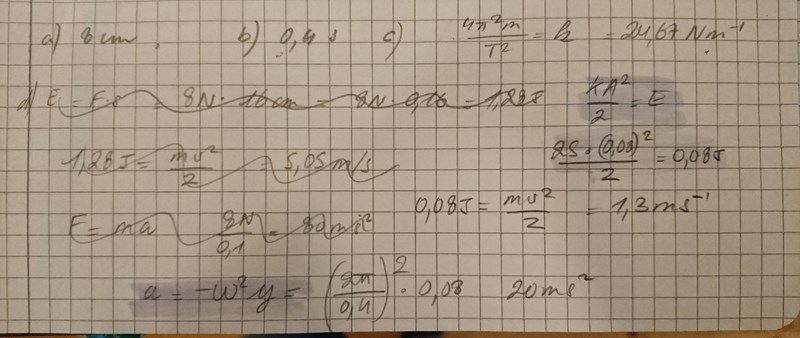 a) 8 cm, b) 0,4 s c) 4π²m/T² = k = 24,67 Nm⁻¹
d) E = F·s = 8N · 16cm = 8N · 0,16 = 1,28J kA²/2 = E
1,28J = mv²/2 = 5,05m/s 25 · (0,08)²/2 = 0,08J
F = ma 8N/0,1 = 80ms² 0,08J = mv²/2 = 1,3ms⁻¹
a = -ω²y = (2π/0,4)² · 0,08 20ms²